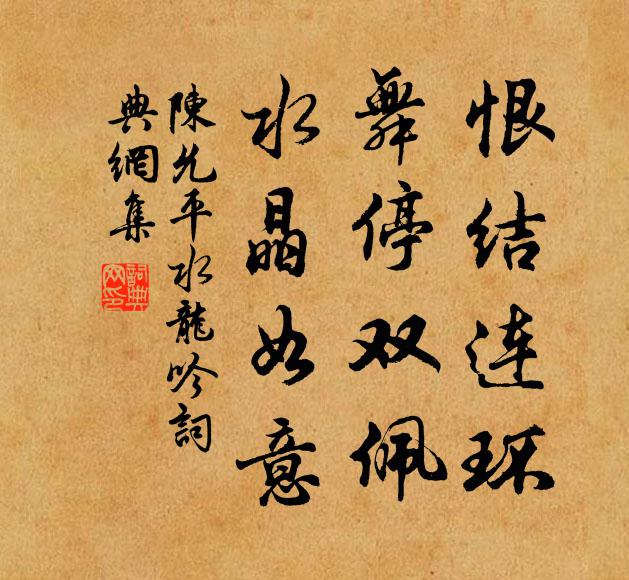 恨结连环
舞停双佩
水晶如意
陳允平水龍吟詞
典網集
詞典
网印